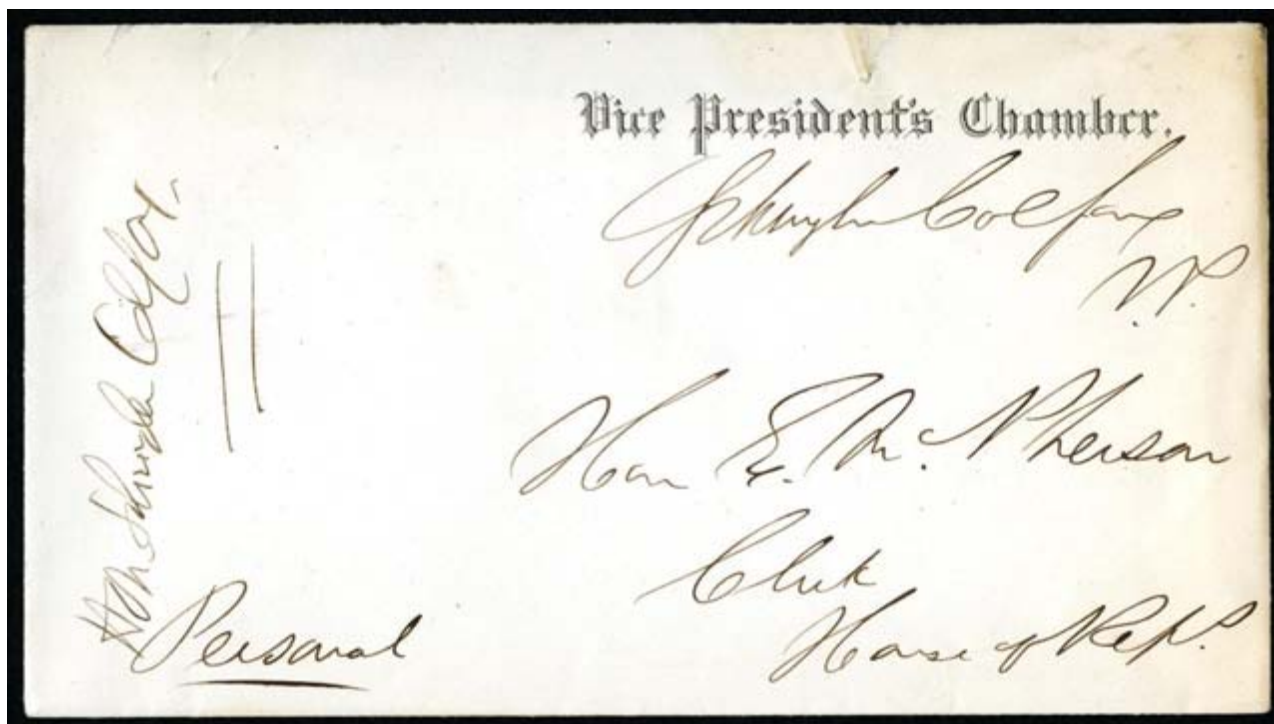 Vice President's Chamber.
Schuyler Colfax
V.P.
Hon E. McPherson
Clerk
House of Reps
Personal
Hon Schuyler Colfax.